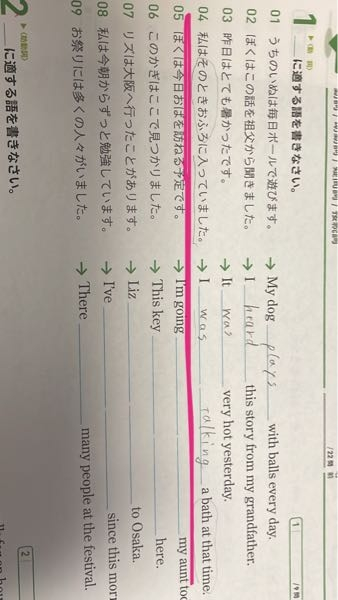 1 ▶〈動 詞〉 ＿に適する語を書きなさい。
1 /9問
/22問
01 うちのいぬは毎日ボールで遊びます。 → My dog plays with balls every day.
02 ぼくはこの話を祖父から聞きました。 → I heard this story from my grandfather.
03 昨日はとても暑かったです。 → It was very hot yesterday.
04 私はそのときおふろに入っていました。 → I was talking a bath at that time.
05 ぼくは今日おばを訪ねる予定です。 → I'm going my aunt
06 このかぎはここで見つかりました。 → This key here.
07 リズは大阪へ行ったことがあります。 → Liz to Osaka.
08 私は今朝からずっと勉強しています。 → I've since this
09 お祭りには多くの人々がいました。 → There many people at the festival.
2 ▶〈助動詞〉 ＿に適する語を書きなさい。
2